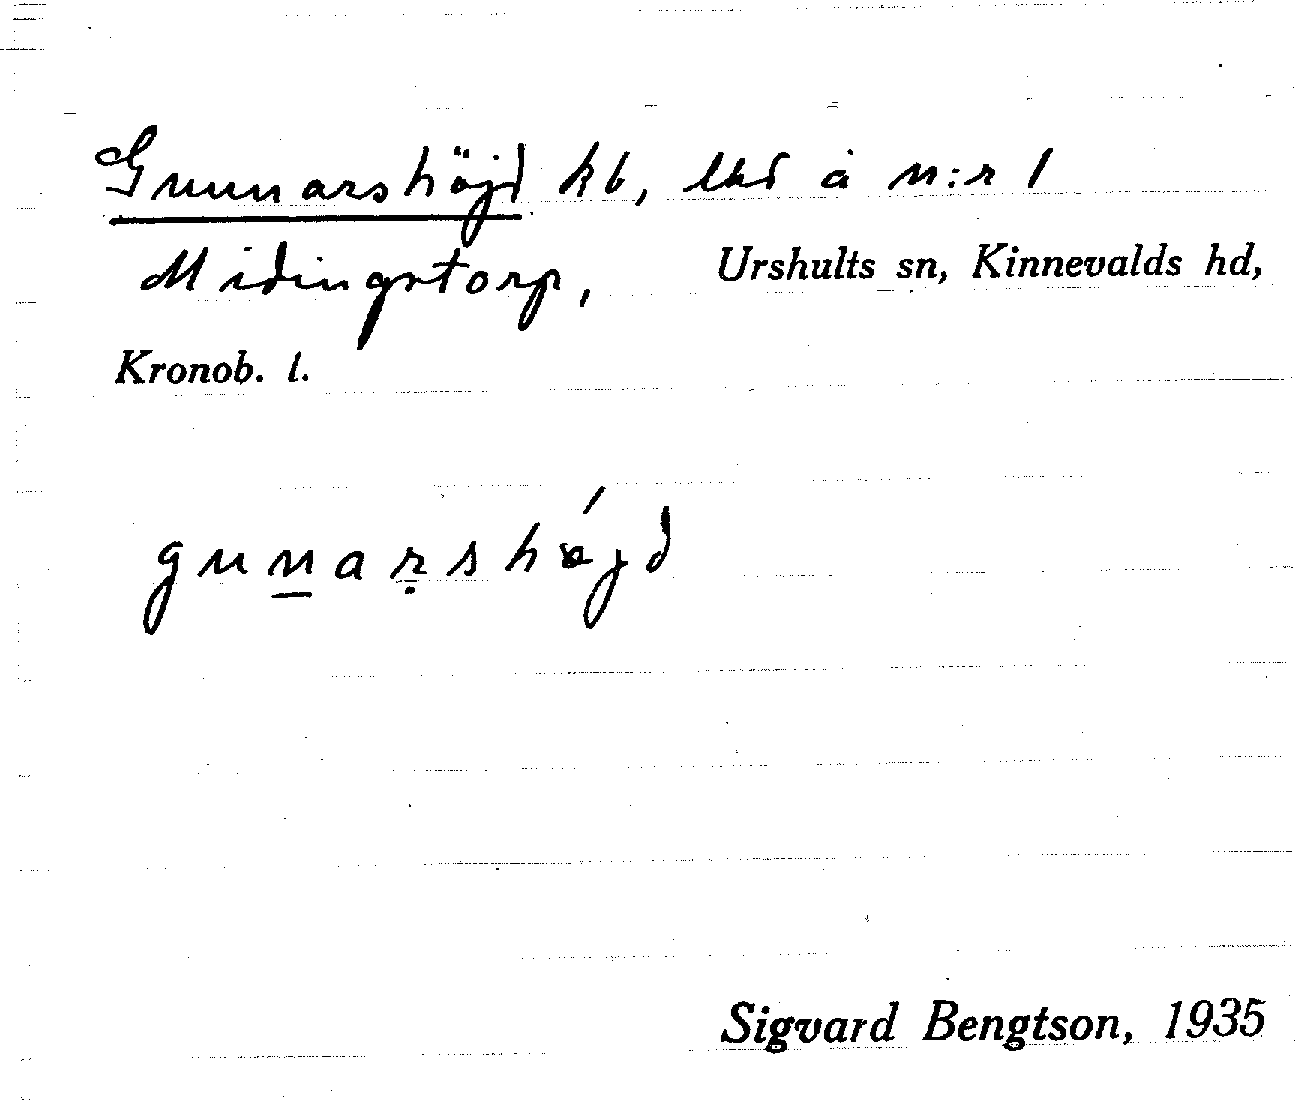 Gunnarshöjd kb, lht å n:r 1
Midingstorp, Urshults sn, Kinnevalds hd,
Kronob. l.
gunarshöjd
Sigvard Bengtson, 1935